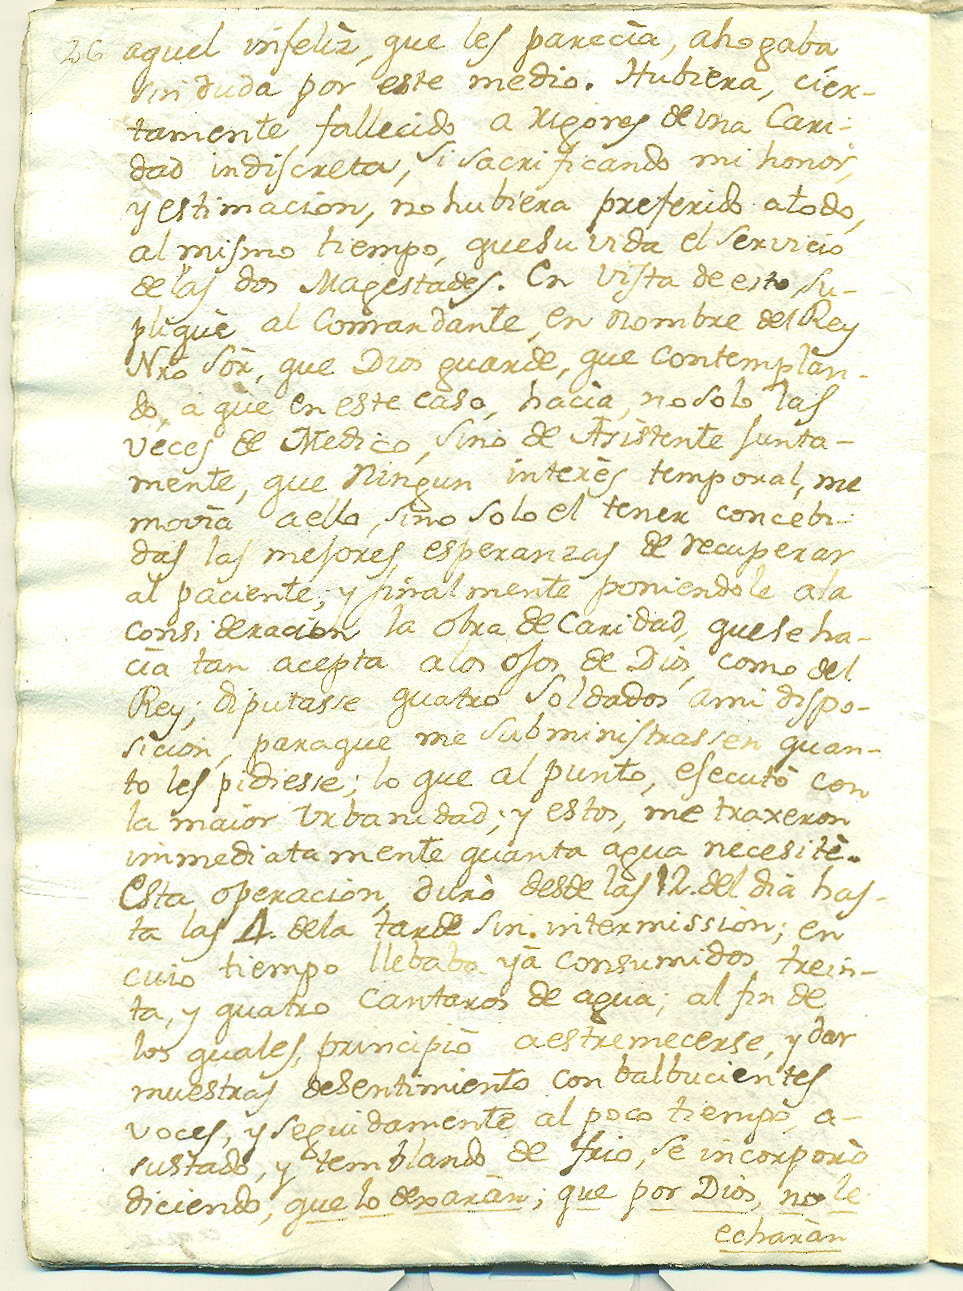 26 aquel infeliz, que les parecìa, ahogaba,
sin duda por este medio. Hubiera, cier-
tamente, fallecido a rigores de una Cari-
dad indiscreta, si sacrificando mi honor,
y estimacion, no hubiera preferido atodo,
al mismo tiempo, que su vida el servicio
de las dos Magestades. En vista de esto, su-
pliquè al Comandante, en nombre del Rey
Nrõ Sõr, que Dios guarde, que contemplan-
do, a que en este caso, hacìa, no solo las
veces de Medico, sino de Asistente junta-
mente, que Ningun interès temporal, me
movìa a ello, sino solo el tener concebi-
das las mejores esperanzas de recuperar
al paciente; y finalmente poniendole ala
consideracion la obra de Caridad, que se ha-
cìa tan acepta a los ojos de Dios, como del
Rey; diputasse quatro Soldados a mi dispo-
sicion, paraque me subministrassen quan-
to les pidiesse; lo que al punto, esecutò con
la maior Urbanidad; y estos, me traxeron
immediatamente quanta agua necesitè.
Esta operacion, durò desde las 12. del dia has-
ta las 4. dela tarde sin. intermission; en
cuio tiempo llebaba yà consumidos trein-
ta, y quatro Cantaros de agua; al fin de
los quales, principiò a estremecerse, y dar
muestras de sentimiento con balbucientes
voces, y seguidamente al poco tiempo, a-
sustado, y temblando de frio, se incorporò
diciendo, que lo dexaràn; que por Dios, no le
echaràn